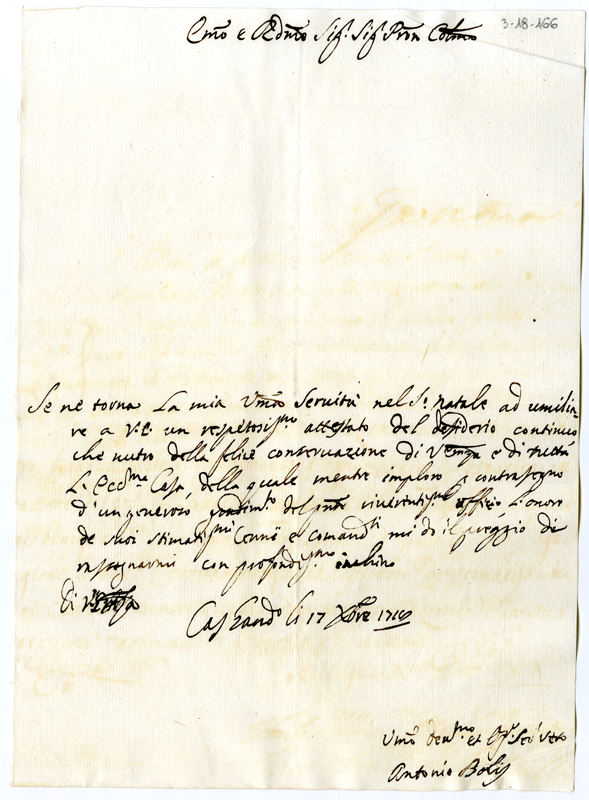 3-18-166
Emo e Rdmo Sigr. Sigr Pron Colmo
Se ne torna La mia Vma Servitù nel So. Natale ad umilia=
re a V.E. un respetosissmo attestato del desiderio continuo
che nutro della felice conservazione di V. Emza e di tutta
L. Eccma Casa, della quale mentre imploro p contrasegno
d'un generoso gradimto del pnte riverentismo offizio L'onore
de suoi stimatismi Cenni e comandti mi do il preggio di
rassegnarmi con profondismo inchino
Di V. Emza
Li 17 Xbre
Vmo Devmo et Obmo Serv Vero
Antonio Bolis